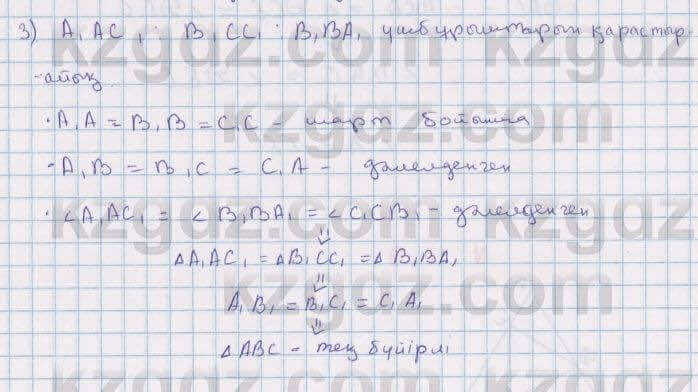 3) A₁AC₁; B₁CC₁; B₁BA₁ үшбұрыштарын қарастыр
-айық.
• A₁A = B₁B = C₁C - шарт бойынша
- A₁B = B₁C = C₁A - дәлелденген
• ∠A₁AC₁ = ∠B₁BA₁ = ∠C₁CB₁ - дәлелденген
⇓
△A₁AC₁ = △B₁CC₁ = △B₁BA₁
⇓
A₁B₁ = B₁C₁ = C₁A₁
⇓
△ABC - тең бүйірлі
kzgdz.com